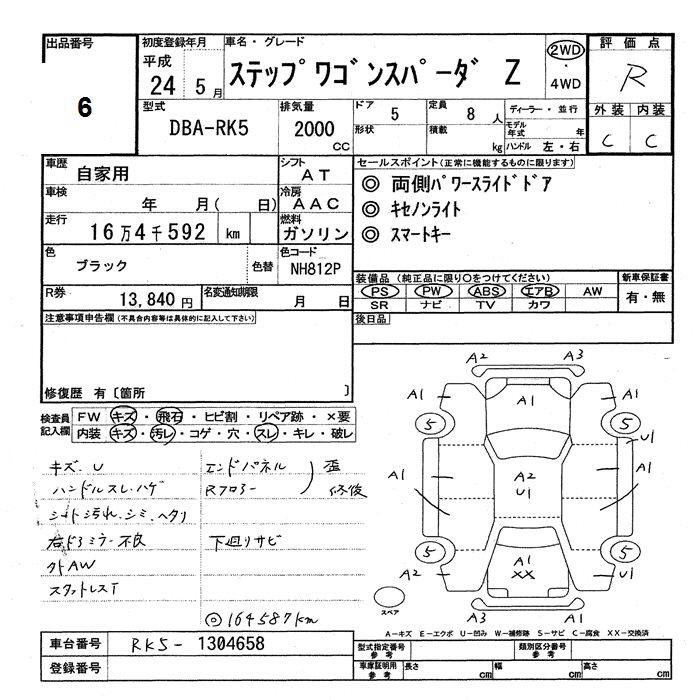 出品番号
6
初度登録年月
平成
24 5月
車名・グレード
ステップワゴンスパーダ Z
2WD
・
4WD
評価点
R
型式
DBA-RK5
排気量
2000
CC
ドア
5
定員
8人
形状
積載
kg
ディーラー・並行
モデル年式 年
ハンドル 左・右
外装 内装
C C
車歴
自家用
シフト
AT
車検
年 月( 日)
冷房
AAC
走行
16万4千592 km
燃料
ガソリン
色
ブラック
色替
色コード
NH812P
R券
13,840円
名変通知期限
月 日
セールスポイント(正常に機能するものに限ります)
◎ 両側パワースライドドア
◎ キセノンライト
◎ スマートキー
装備品(純正品に限り○をつけてください)
PS PW ABS エアB AW
SR ナビ TV カワ
新車保証書
有・無
後日品
注意事項申告欄(不具合内容等は具体的に記入して下さい)
修復歴 有〔箇所 〕
検査員記入欄
FW キズ・飛石・ヒビ割・リペア跡・×要
内装 キズ・汚レ・コゲ・穴・スレ・キレ・破レ
キズ.U
ハンドルスレ.ハゲ
シート汚れ.シミ.ヘタリ
右ドアミラー不良
外AW
スタットレスT
エンドパネル
Rフロアー
歪
修復
下廻りサビ
◎164587km
A2 A3
A1 A1 A1
5 5
U1
A1 A2 A1
U1
5 5
A2 A1 U1
XX
A3 A1
スペア
A-キズ E-エクボ U-凹み W-補修跡 S-サビ C-腐食 XX-交換済
車台番号
RK5-1304658
登録番号
型式指定番号
参考
類別区分番号
参考
車庫証明用
参考
長さ cm
幅 cm
高さ cm